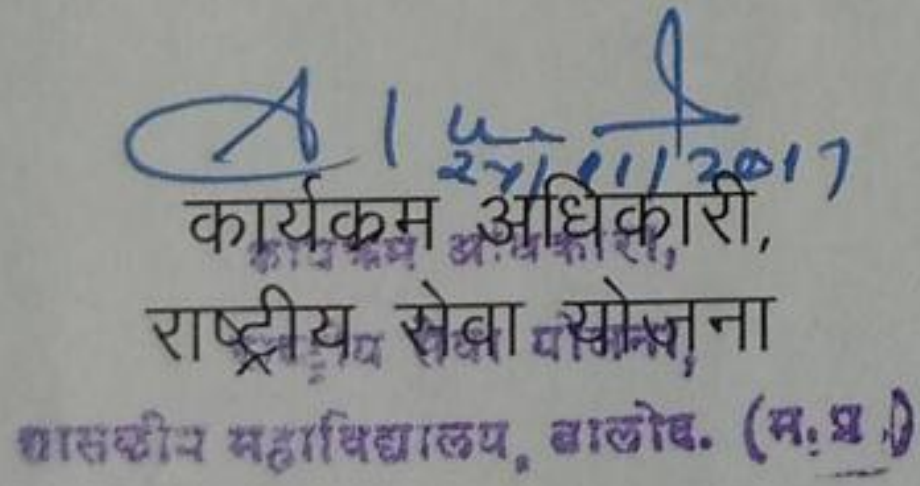 27/11/2017
कार्यक्रम अधिकारी,
राष्ट्रीय सेवा योजना
कार्यक्रम अधिकारी,
राष्ट्रीय सेवा योजना,
शासकीय महाविद्यालय, बालोद. (म. प्र.)